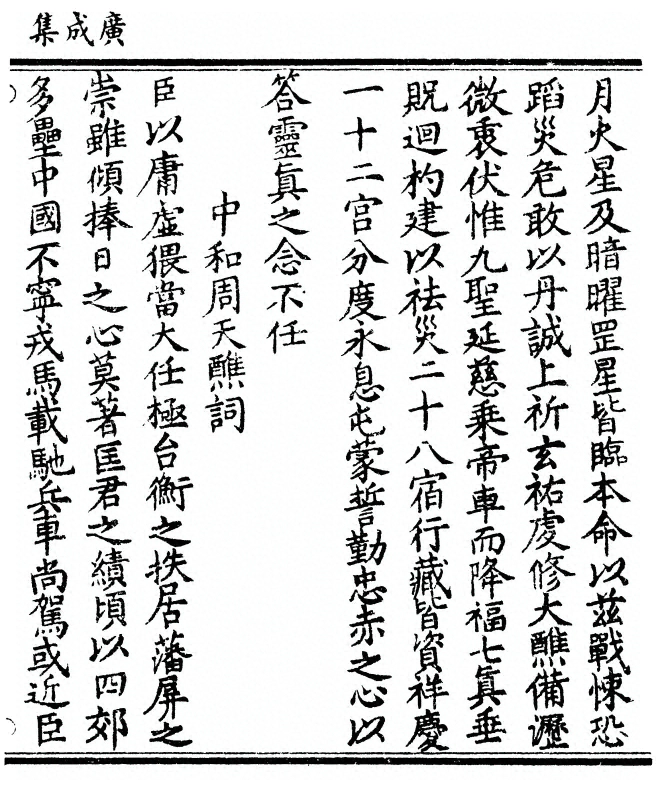 廣成集
月火星及暗曜罡星皆臨本命以茲戰悚恐
蹈災危敢以丹誠上祈玄祐虔修大醮備瀝
微衷伏惟九聖延慈乘帝車而降福七眞垂
貺迴杓建以祛災二十八宿行藏皆資祥慶
一十二宮分度永息屯蒙誓勤忠赤之心以
答靈眞之念不任
中和周天醮詞
臣以庸虛猥當大任極台衡之秩居藩屏之
崇雖傾捧日之心莫著匡君之績頃以四郊
多壘中國不寧戎馬載馳兵車尚駕或近臣